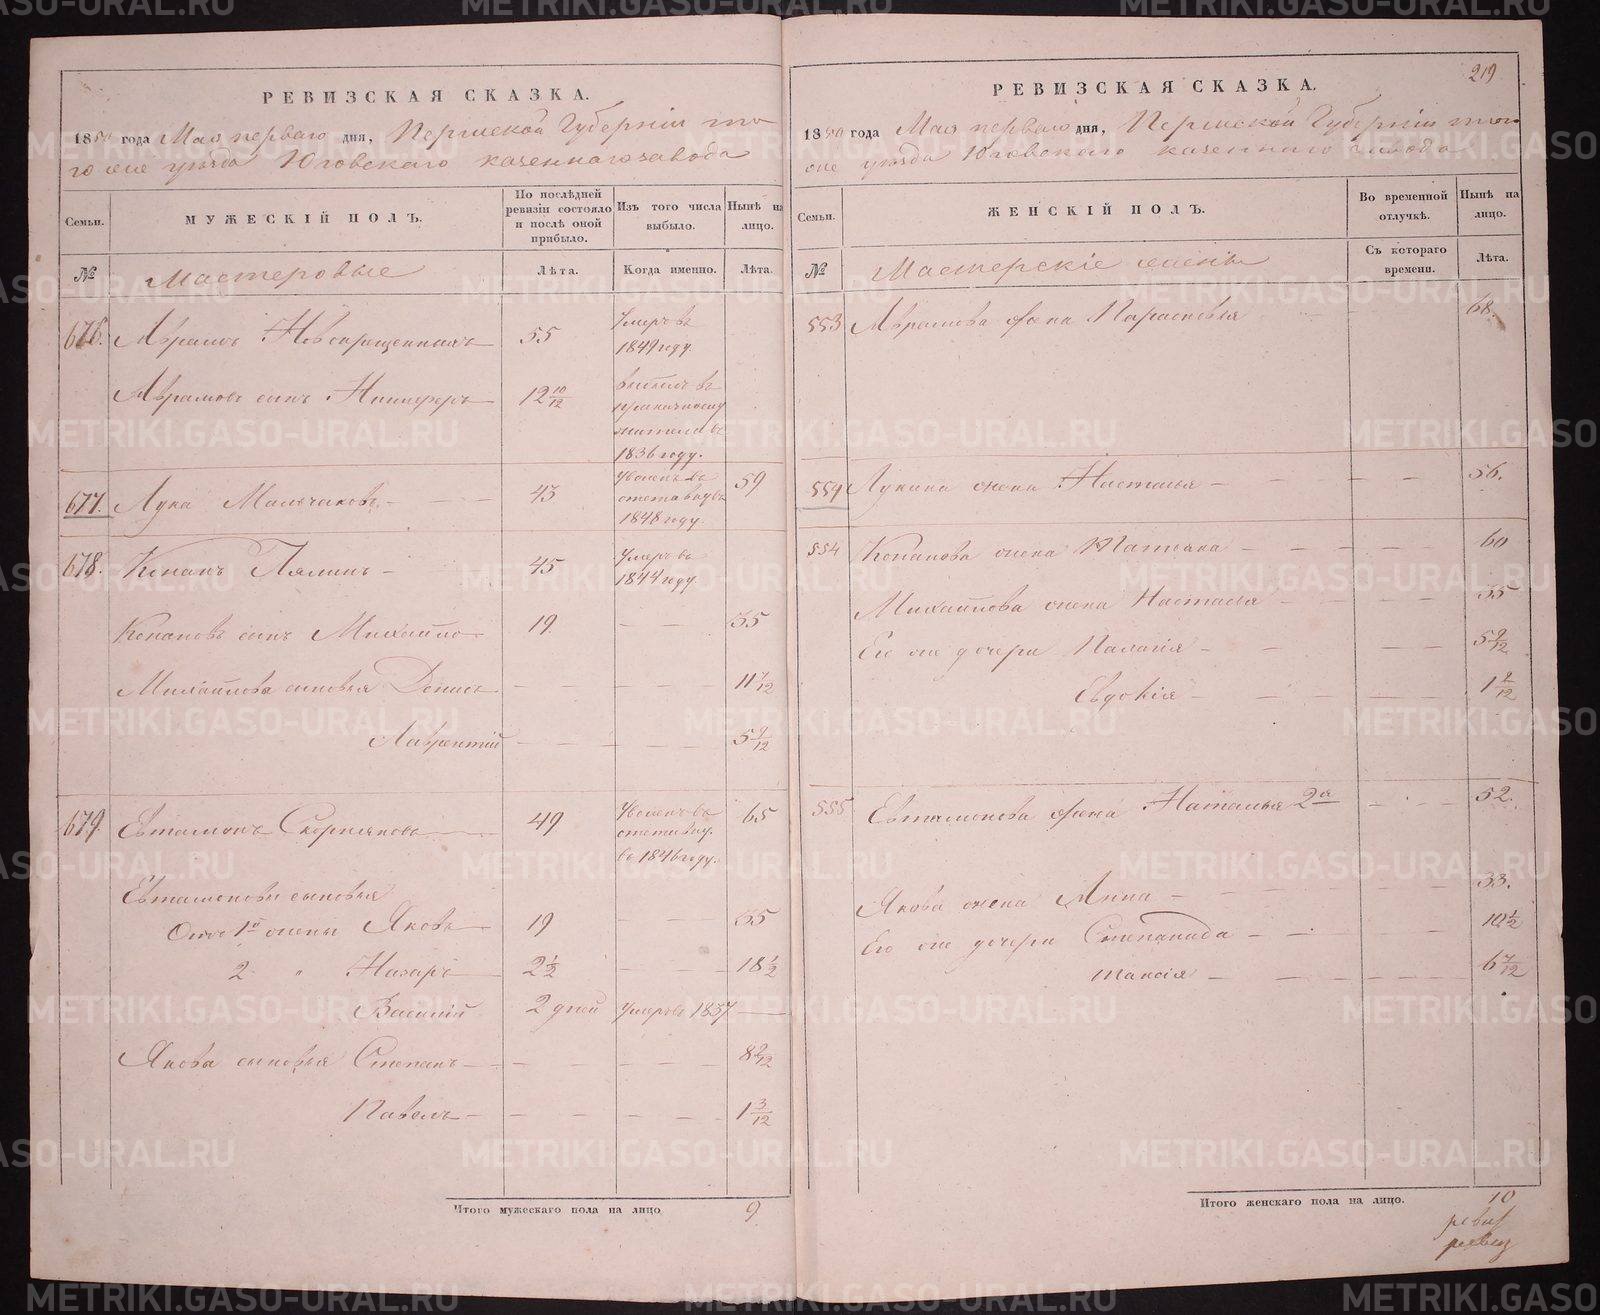 РЕВИЗСКАЯ СКАЗКА.
1850 года Мая перваго дня, Пермской Губерніи то-
го же уезда Юговскаго казеннаго завода
Семьи.
МУЖЕСКІЙ ПОЛЪ.
По послѣдней ревизіи состояло и послѣ оной прибыло.
Изъ того числа выбыло.
Нынѣ на лицо.
№
Мастеровые
Лѣта.
Когда именно.
Лѣта.
676. Аврамъ Новокрещенныхъ 55 Умеръ въ 1849 году.
Аврамовъ сынъ 12 10/12
1836 году.
677. Лука Мальчиковъ 43 Уволенъ въ отставку въ 1848 году. 59
678. Конанъ Лялинъ 45 Умеръ въ 1844 году.
Конановъ сынъ Михайло 19 35
Михайлова сыновья Денисъ 11 7/12
Лаврентій 5 9/12
679. Евтамонъ 49 Уволенъ въ отставку въ 1846 году. 65
сыновья
1й жены Яковъ 19 35
2 " Назаръ 2 1/2 18 1/2
Василій 2 дней Умеръ въ 1837
Якова сыновья Степанъ 8 2/12
Павелъ 1 3/12
Итого мужескаго пола на лицо 9
219
РЕВИЗСКАЯ СКАЗКА.
1850 года Мая перваго дня, Пермской Губерніи того
же уезда Юговскаго казеннаго завода
Семьи.
ЖЕНСКІЙ ПОЛЪ.
Во временной отлучкѣ.
Нынѣ на лицо.
№
Мастерскіе жены
Съ котораго времени.
Лѣта.
553 Аврамова жена Парасковья 68.
554 Лукина жена Настасья 56.
554 Конанова жена Татьяна 60
Михайлова жена Настасья 35
Его же дочери Палагія 5 9/12
Евдокія 1 2/12
555 жена Наталья 2я 52.
Якова жена Анна 33.
Его же дочери Степанида 10 1/2
Таисія 6 7/12
Итого женскаго пола на лицо. 10
METRIKI.GASO-URAL.RU